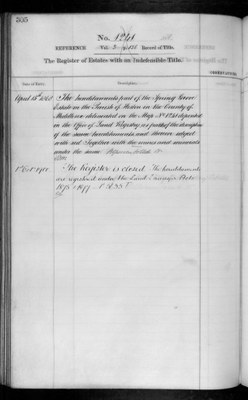 305
No. 1241
REFERENCE Vol. 3 Record of Title.
The Register of Estates with an Indefeasible Title.
Date of Entry.
Description
The hereditaments part of the Spring Grove
Estate in the Parish of Heston in the County of
Middlesex delineated on the Map No. 1241 deposited
in the Office of Land Registry as part of the description
of the same hereditaments and thereon edged
with red Together with the mines and minerals
under the same
The Register is closed. The hereditaments
are registered under the Land Transfer Acts
1875 & 1897.